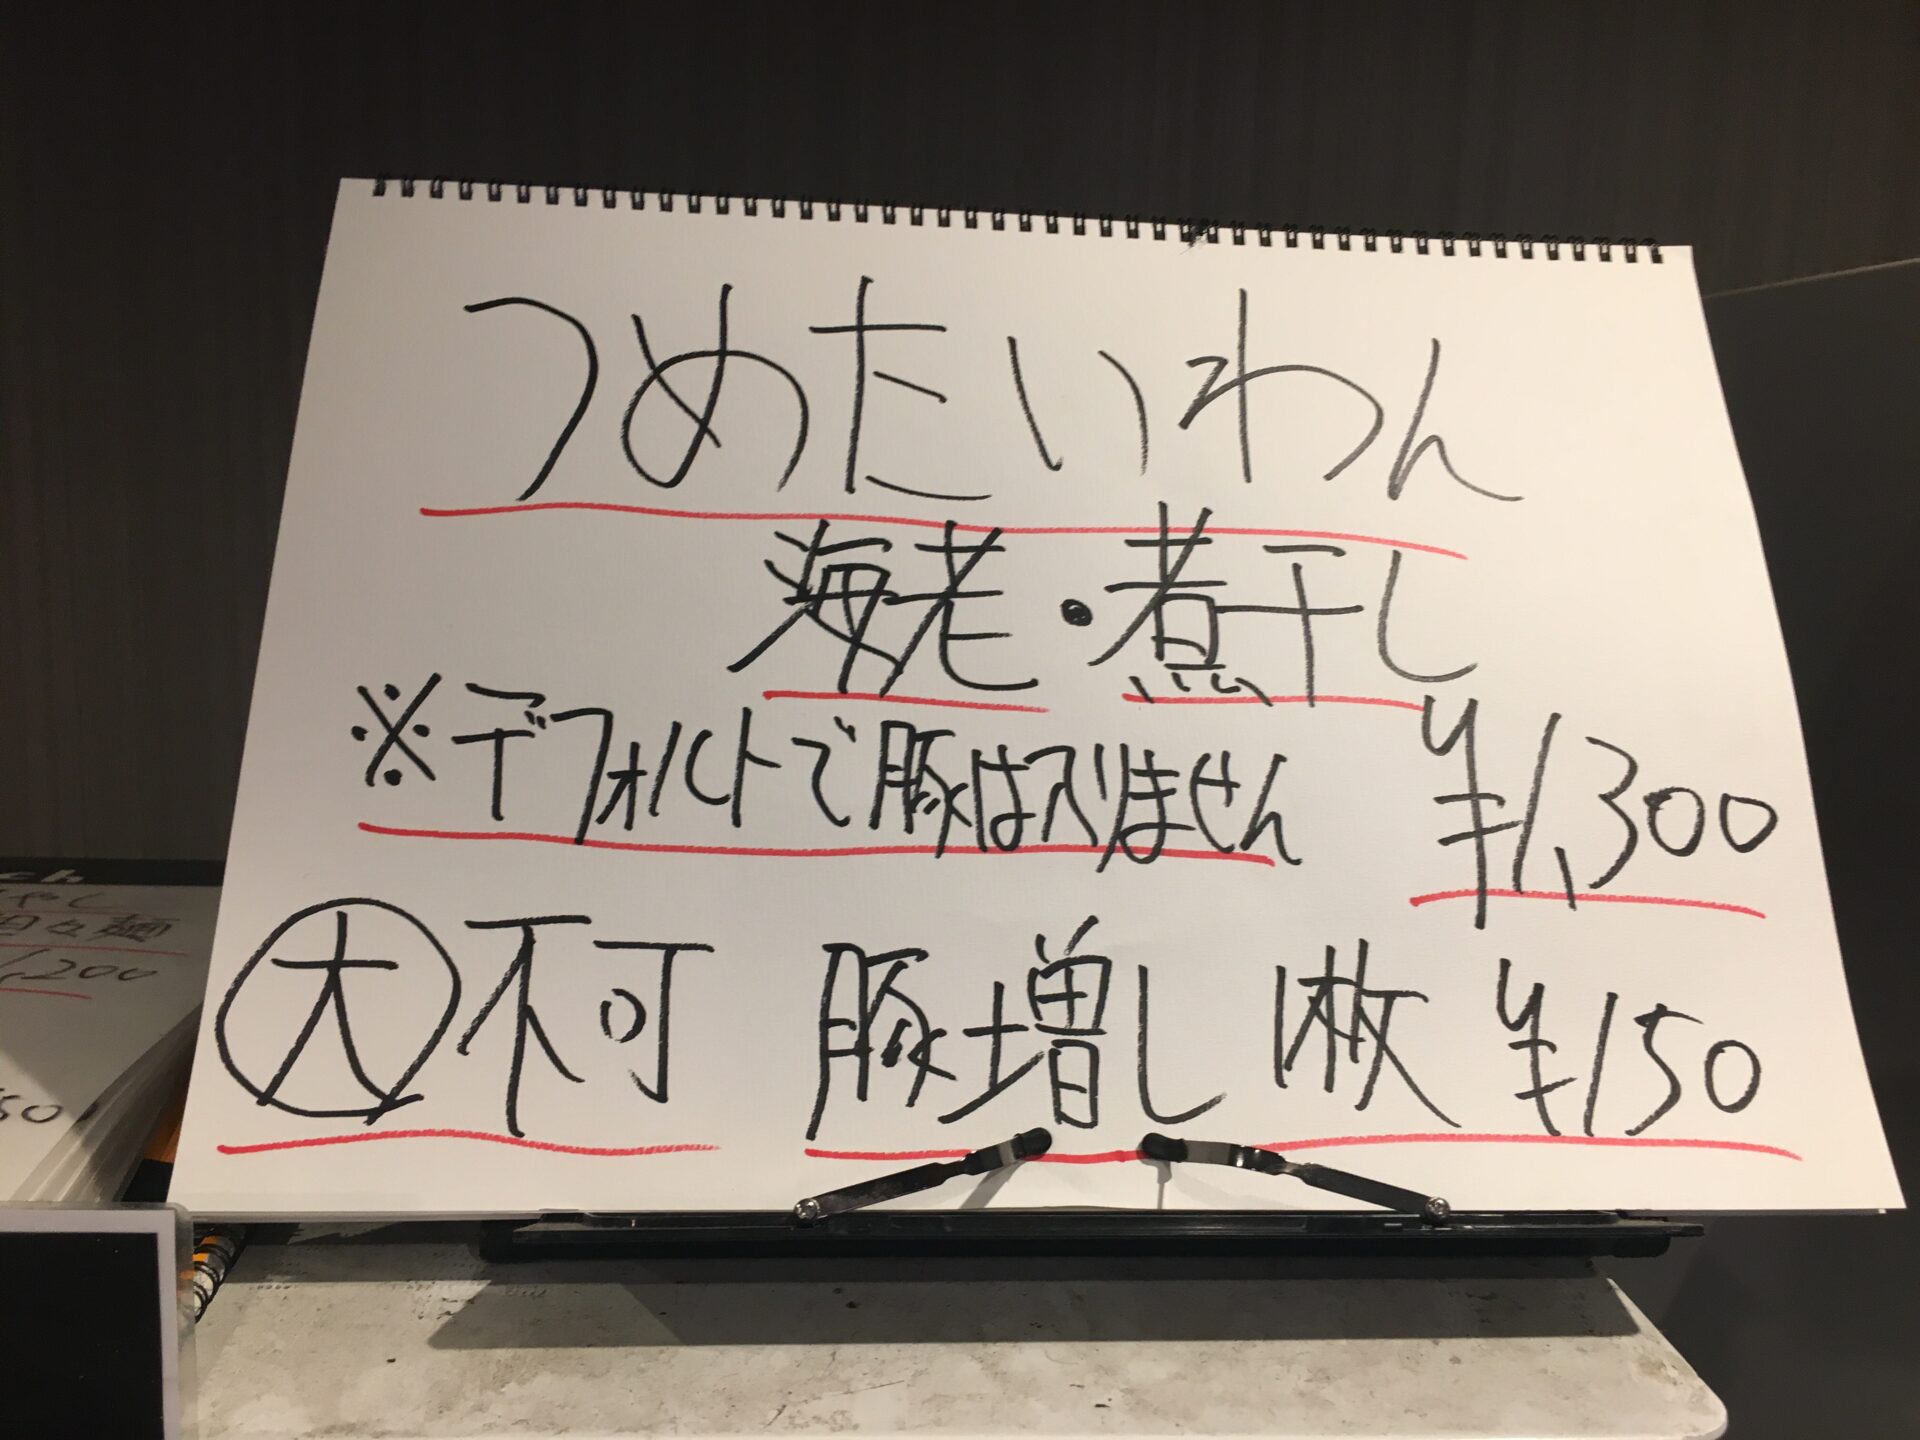 つめたいわん
海老・煮干し
※デフォルトで豚は入りません
¥1,300
大不可 豚増し 1枚 ¥150
ch
やし
担々麺
1,200